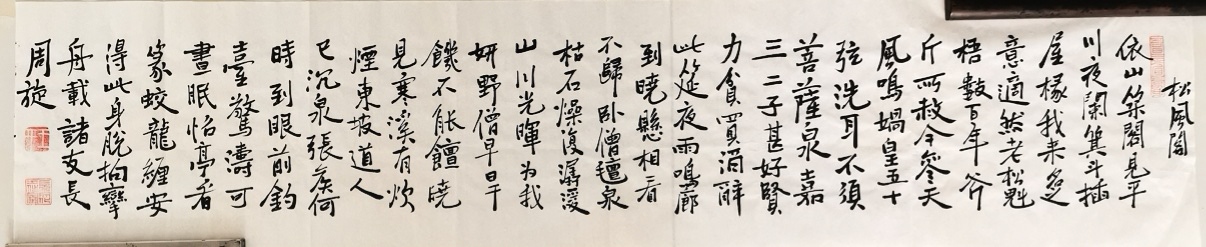 松風閣
依山築閣見平
川夜闌箕斗插
屋椽我来名之
意適然老松魁
梧數百年斧
斤所赦今參天
風鳴媧皇五十
弦洗耳不須
菩薩泉嘉
三二子甚好賢
力貧買酒醉
此筵夜雨鳴廊
到曉懸相看
不歸卧僧氊泉
枯石燥復潺湲
山川光暉为我
妍野僧早旱
饑不能饘曉
見寒溪有炊
煙東坡道人
已沉泉張侯何
時到眼前釣
臺驚濤可
晝眠怡亭看
篆蛟龍纏安
得此身脫拘攣
舟載諸友長
周旋